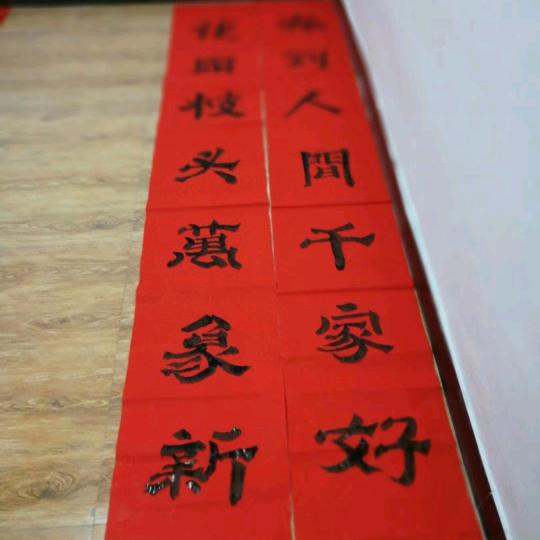 春到人間千家好
花開枝头萬象新